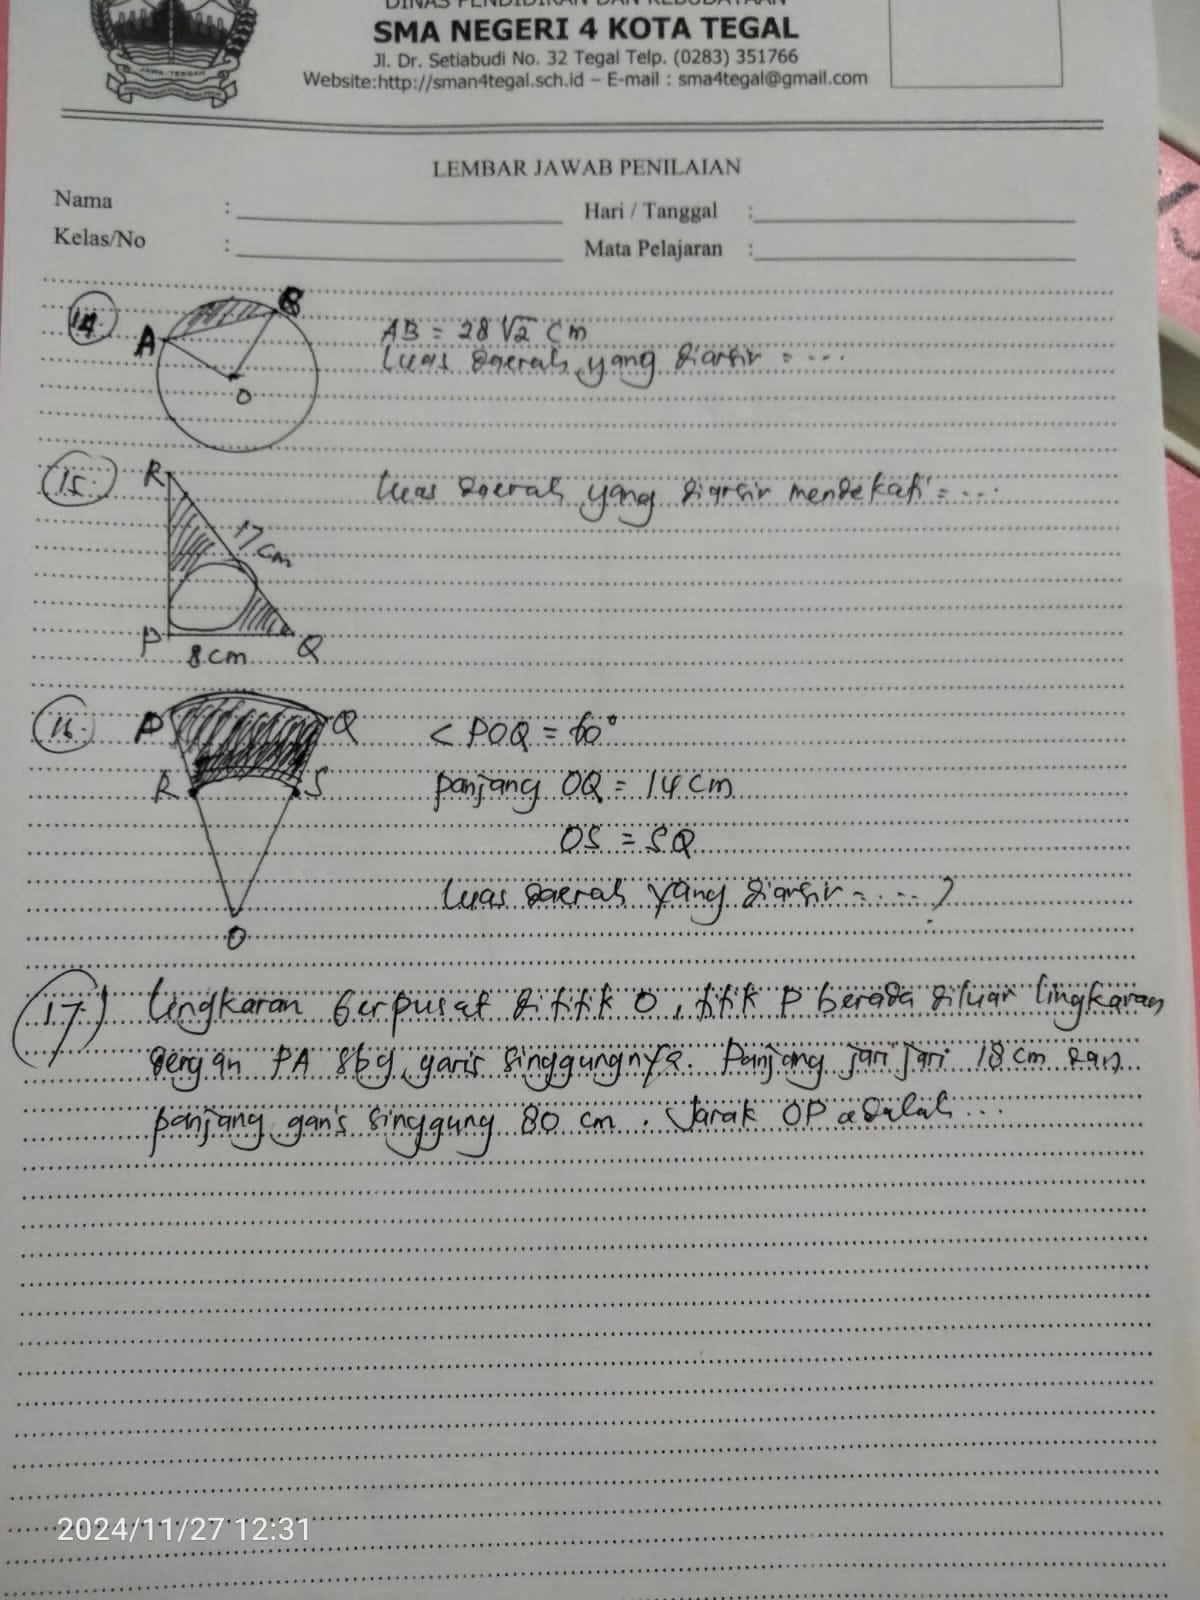 DINAS PENDIDIKAN DAN KEBUDAYAAN
SMA NEGERI 4 KOTA TEGAL
Jl. Dr. Setiabudi No. 32 Tegal Telp. (0283) 351766
Website:http://sman4tegal.sch.id – E-mail : sma4tegal@gmail.com
JAWA TENGAH
LEMBAR JAWAB PENILAIAN
Nama : Hari / Tanggal :
Kelas/No : Mata Pelajaran :
14. A B O
AB = 28√2 cm
Luas daerah yang diarsir = ...
15. R 17 cm P 8 cm Q
Luas daerah yang diarsir mendekati = ...
16. P Q R S O
< POQ = 60°
panjang OQ = 14 cm
OS = SQ
Luas daerah yang diarsir = ....?
17) Lingkaran berpusat di titik O, titik P berada diluar lingkaran
dengan PA sbg garis singgungnya. Panjang jari jari 18 cm dan
panjang garis singgung 80 cm. Jarak OP adalah ...
2024/11/27 12:31